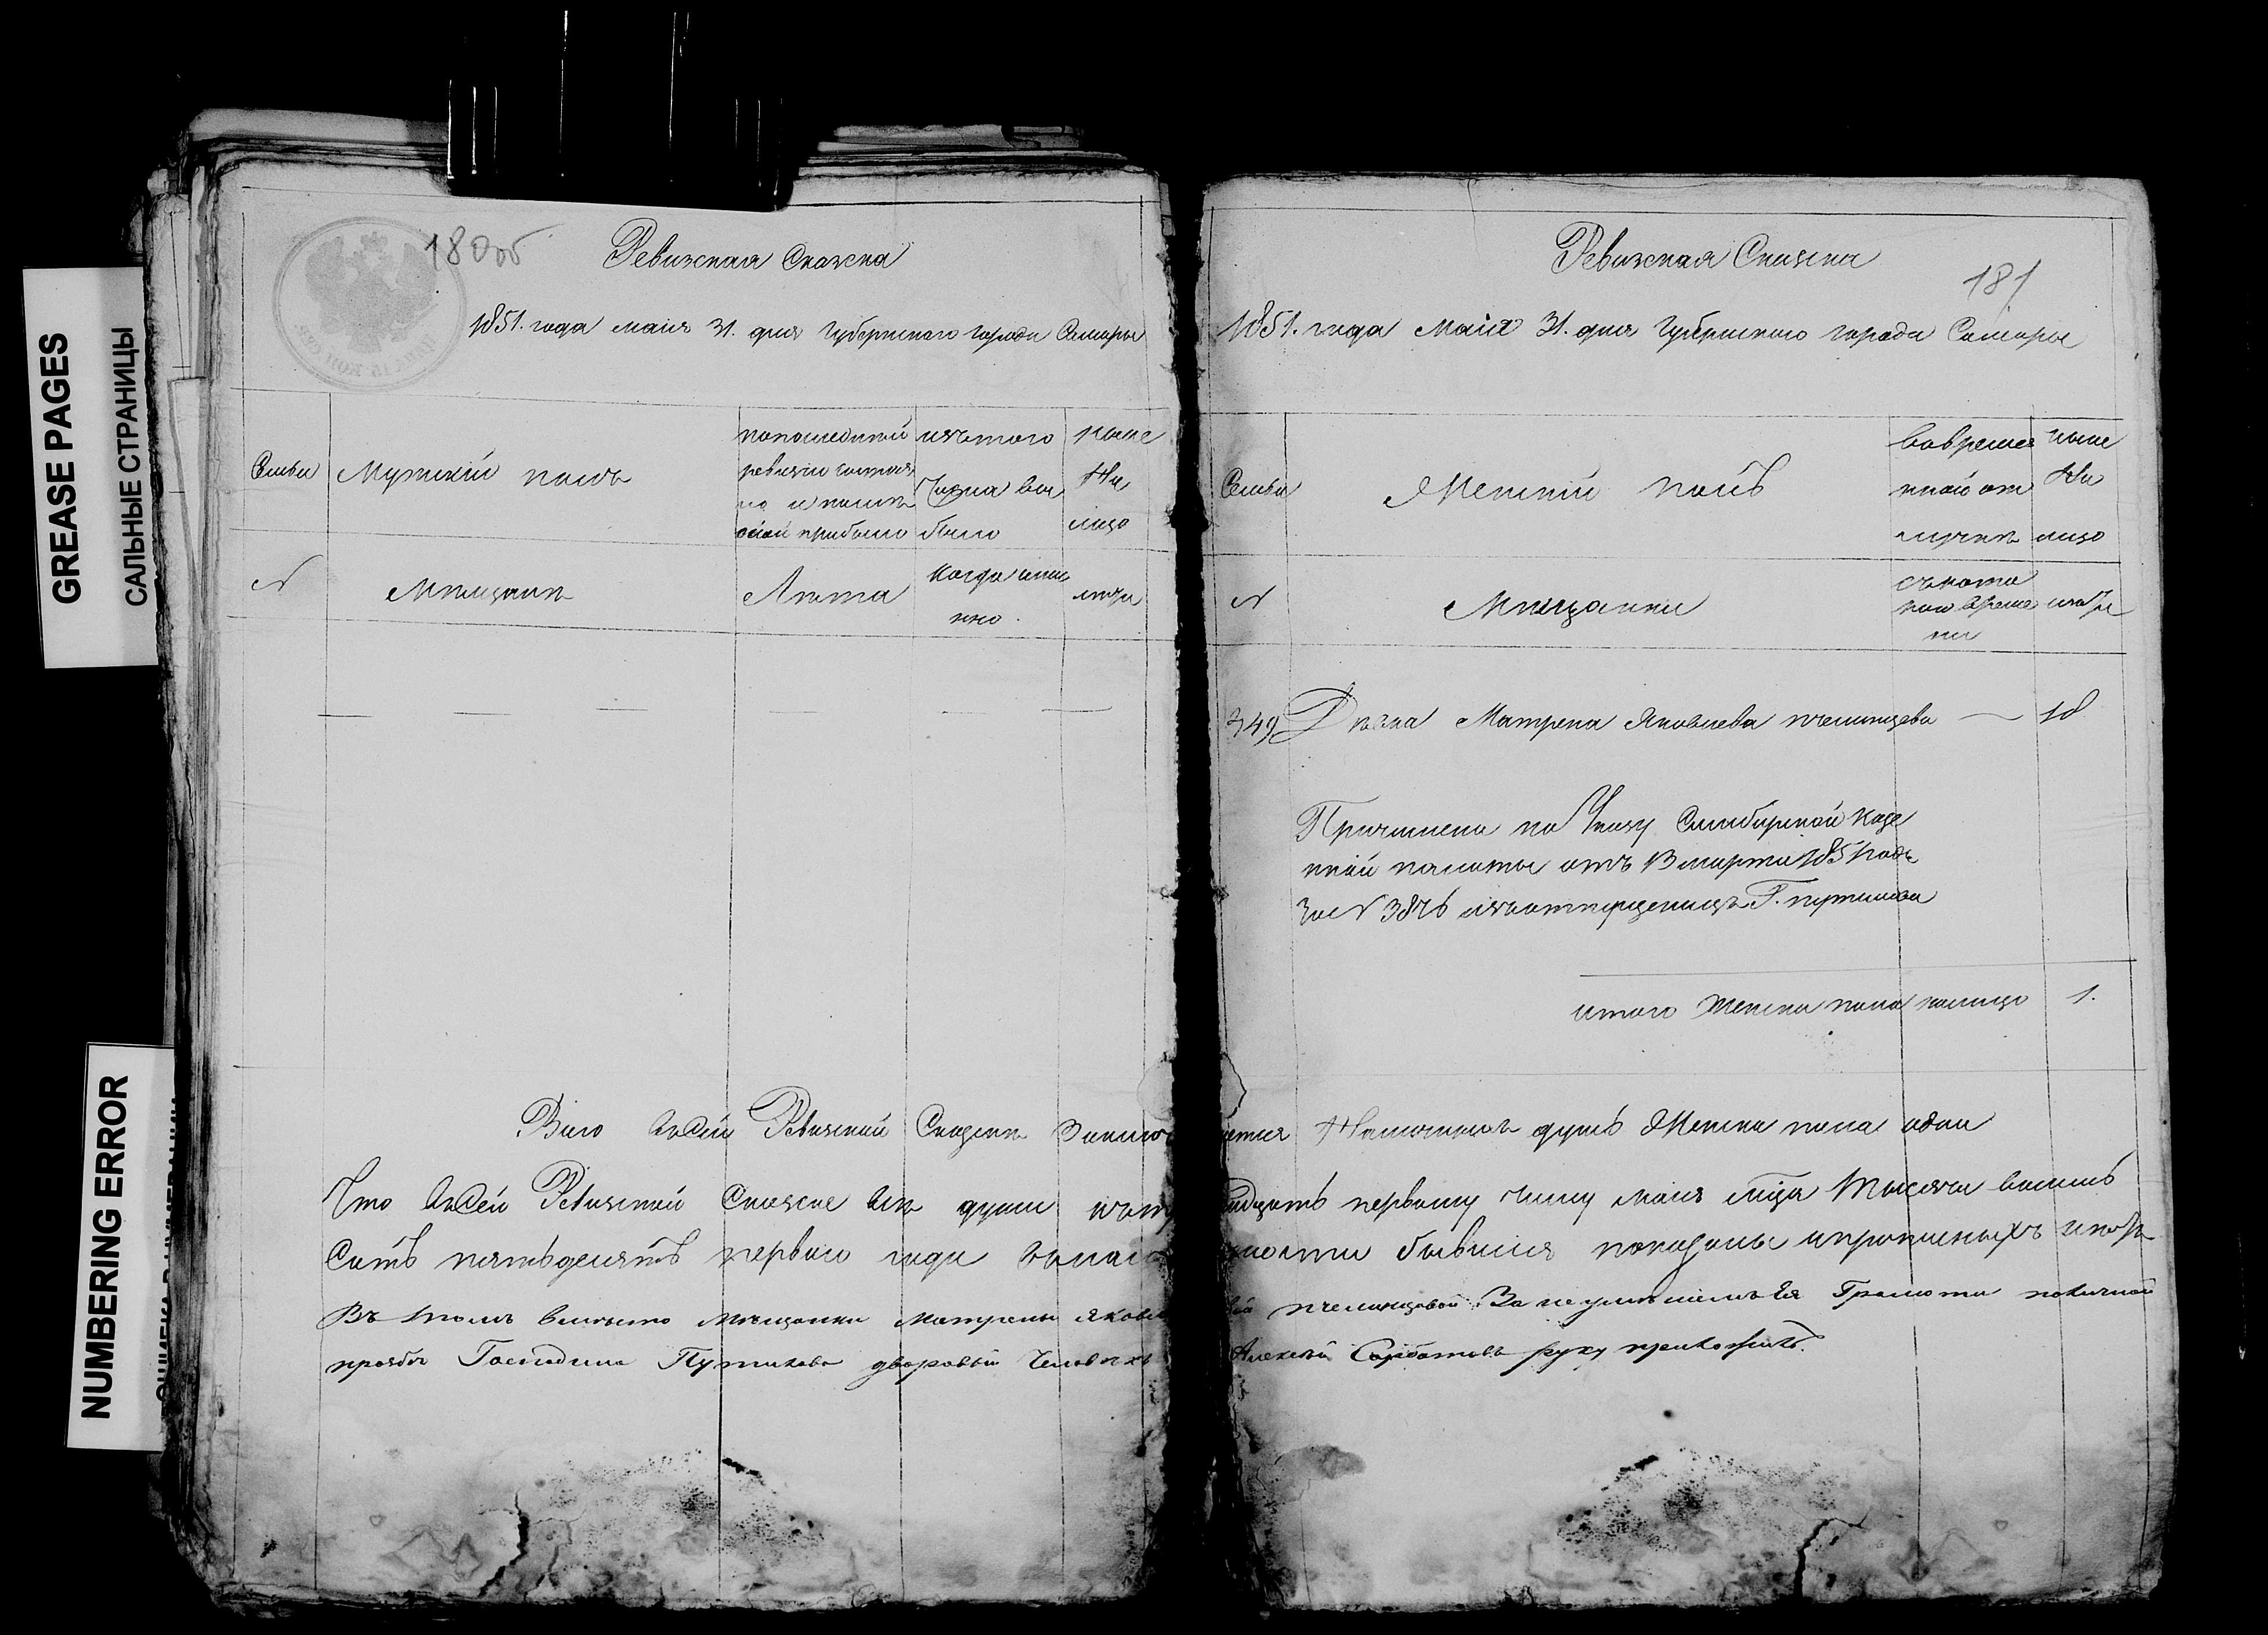 GREASE PAGES
САЛЬНЫЕ СТРАНИЦЫ
NUMBERING ERROR
180об
Ревизская Сказка
1851. года маия 31. дня Губернскаго города Самары
Семьи
Мужский полъ
по последней
ревизіи состоя
ло и после
оной прибыло
изътого
Числа вы
было
ныне
На
лицо
N
Мещане
Лета
Когда имен
но.
лета
Ревизская Сказка
181
1851. года Маия 31. дня Губернскаго города Самары
Семьи
Женский полъ
вовремен
ной от
лучке
ныне
На
лицо
N
Мещанки
съкото
раго време
ни
лета
349
Девка Матрена Яковлева пчелинцева — 18
Причислена по Указу Симбирской Казе
нной палаты отъ 13 марта 1851 года
За N 3876 изъ отпущеницъ Г. путилова
итого Женска пола налицо 1.
Всего въ Сей Ревизской Сказке Заключается Наличныхъ душъ Женска пола одна
Что въ Сей Ревизской Сказке все души къ тридцать первому числу маия мца тысяча восемь
Сотъ пятьдесятъ первого года въ наличности бывшия показаны и прописныхъ нетъ
Въ томъ вместо мещанки Матрены Яковлевой пчелинцовой За неумениемъ Ея Грамоты поличной
прозбе Господина Путилова дворовый Человекъ Алексей руку приложилъ.